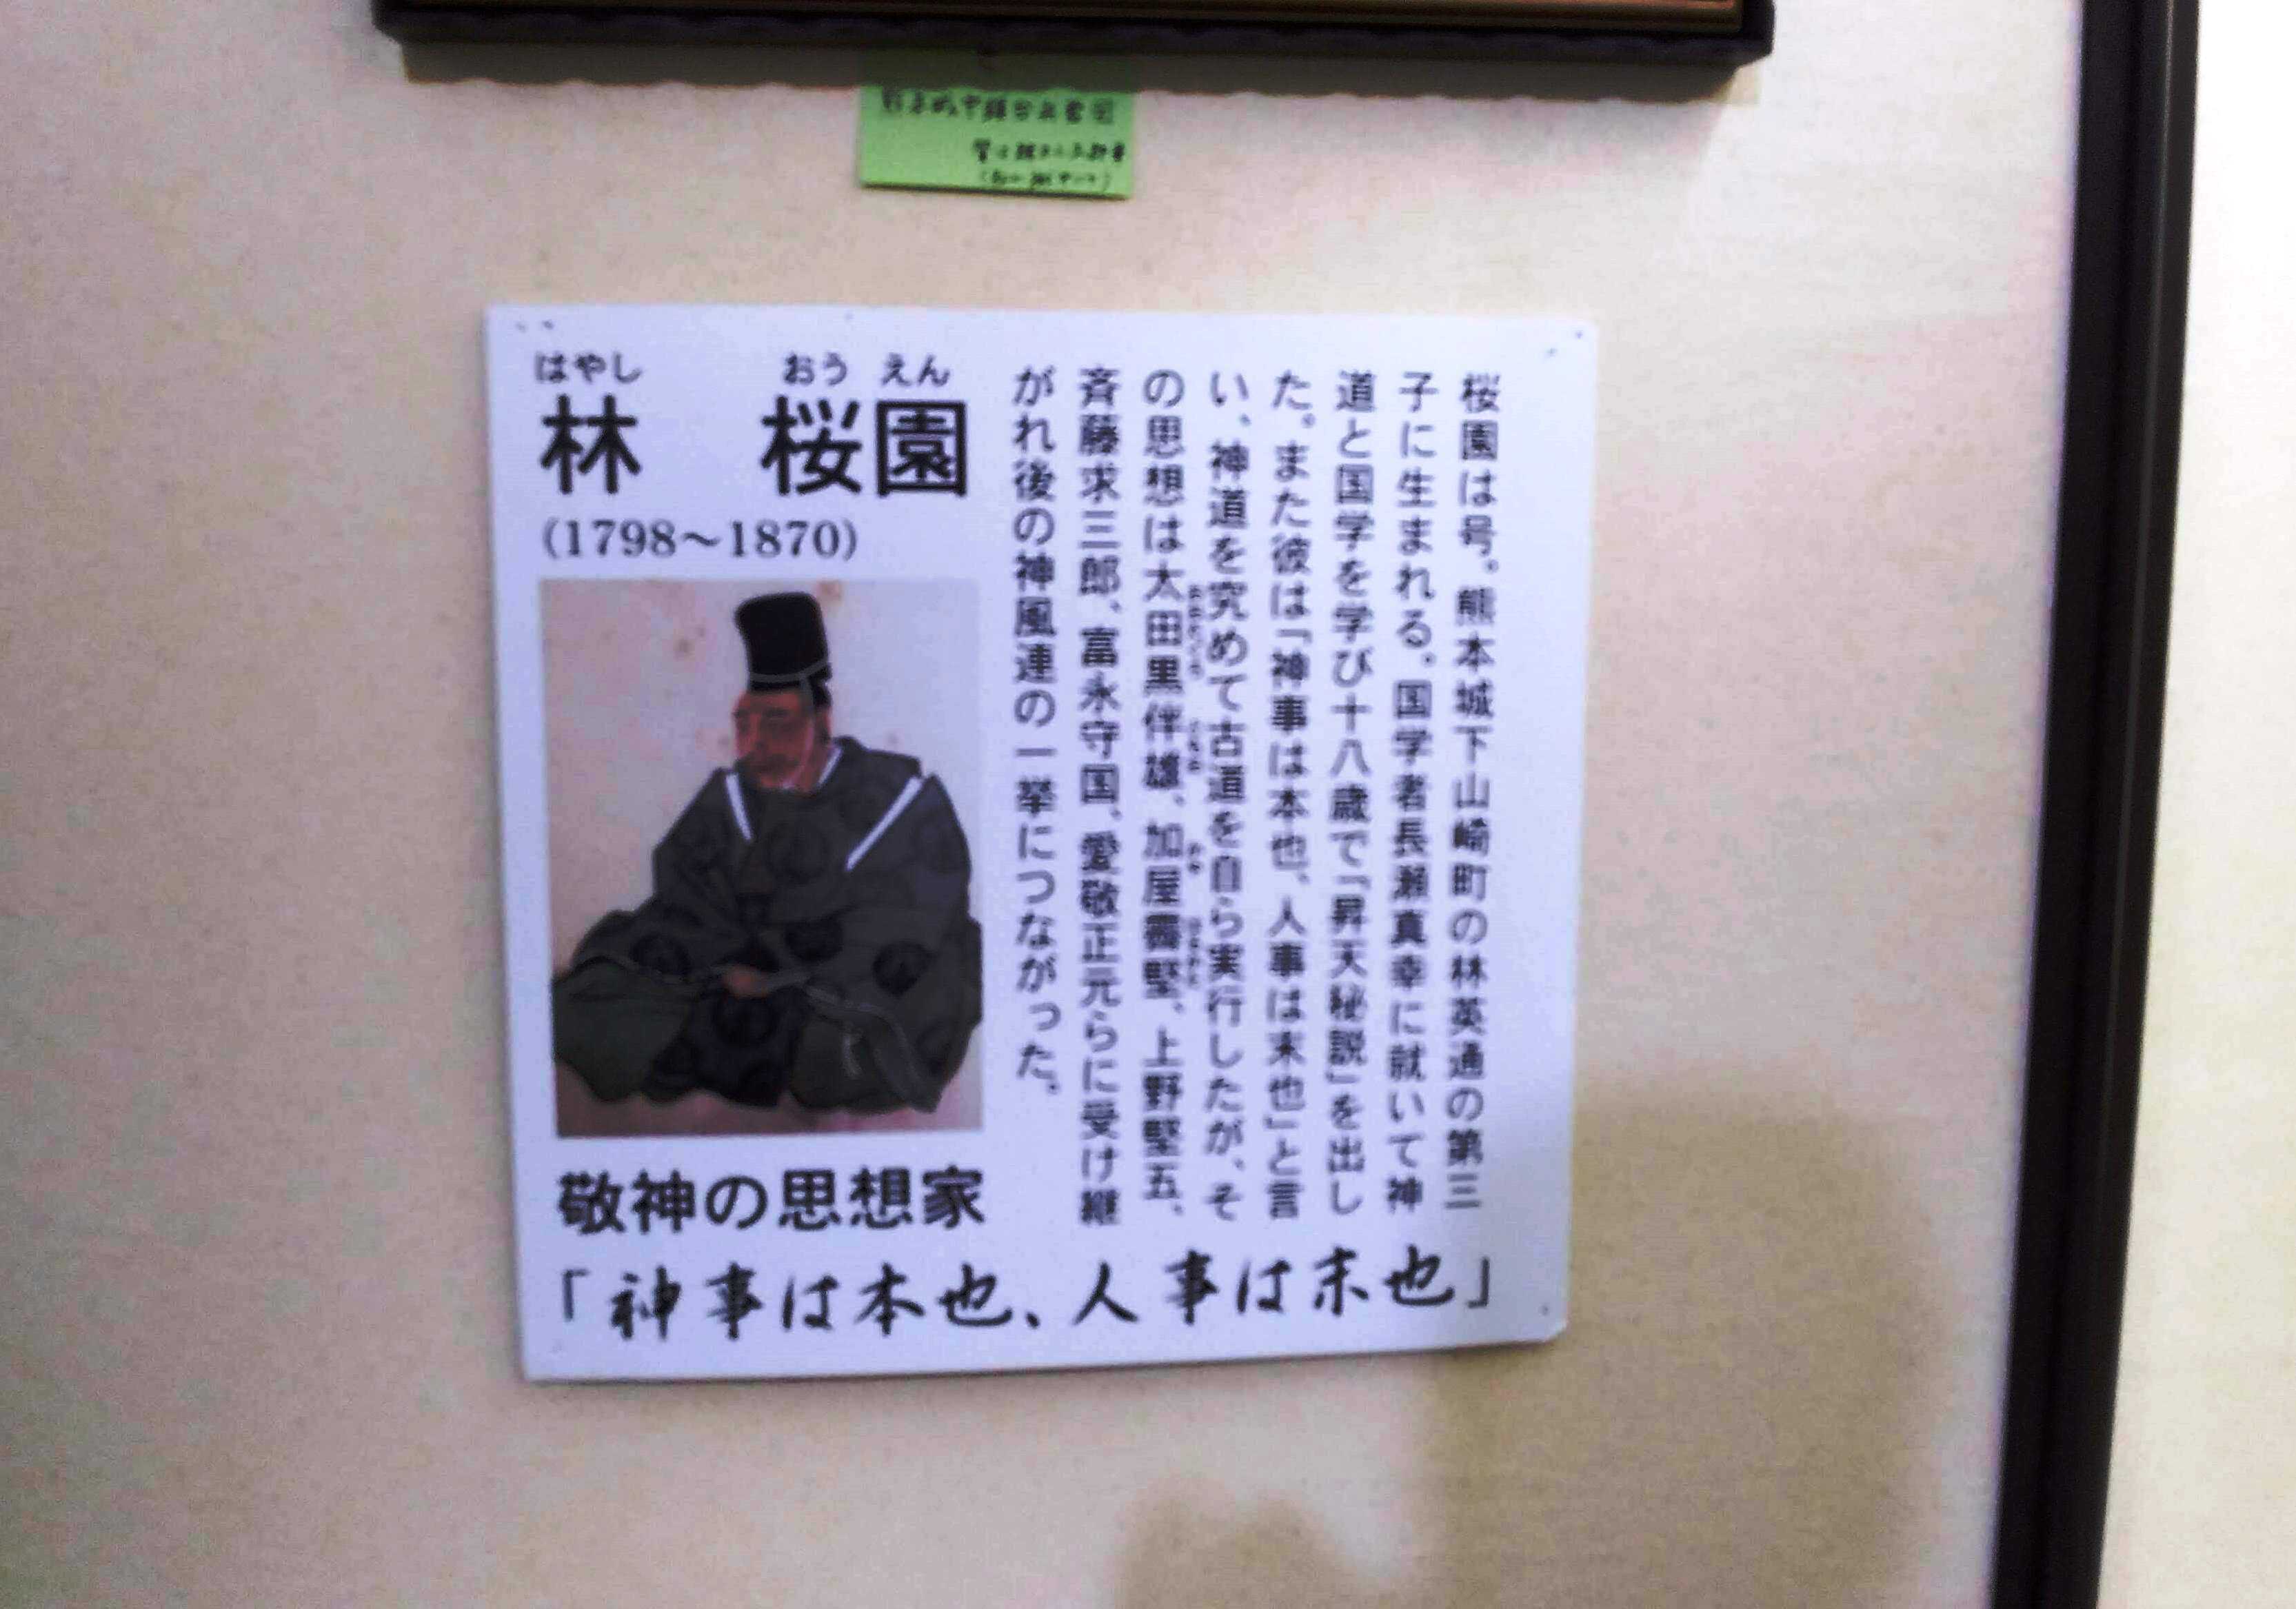 はやし おうえん
林 桜園
(1798～1870)
桜園は号。熊本城下山崎町の林英通の第三
子に生まれる。国学者長瀬真幸に就いて神
道と国学を学び十八歳で「昇天秘説」を出し
た。また彼は「神事は本也、人事は末也」と言
い、神道を究めて古道を自ら実行したが、そ
の思想は太田黒伴雄、加屋霽堅、上野堅五、
斉藤求三郎、富永守国、愛敬正元らに受け継
がれ後の神風連の一挙につながった。
敬神の思想家
「神事は本也、人事は末也」